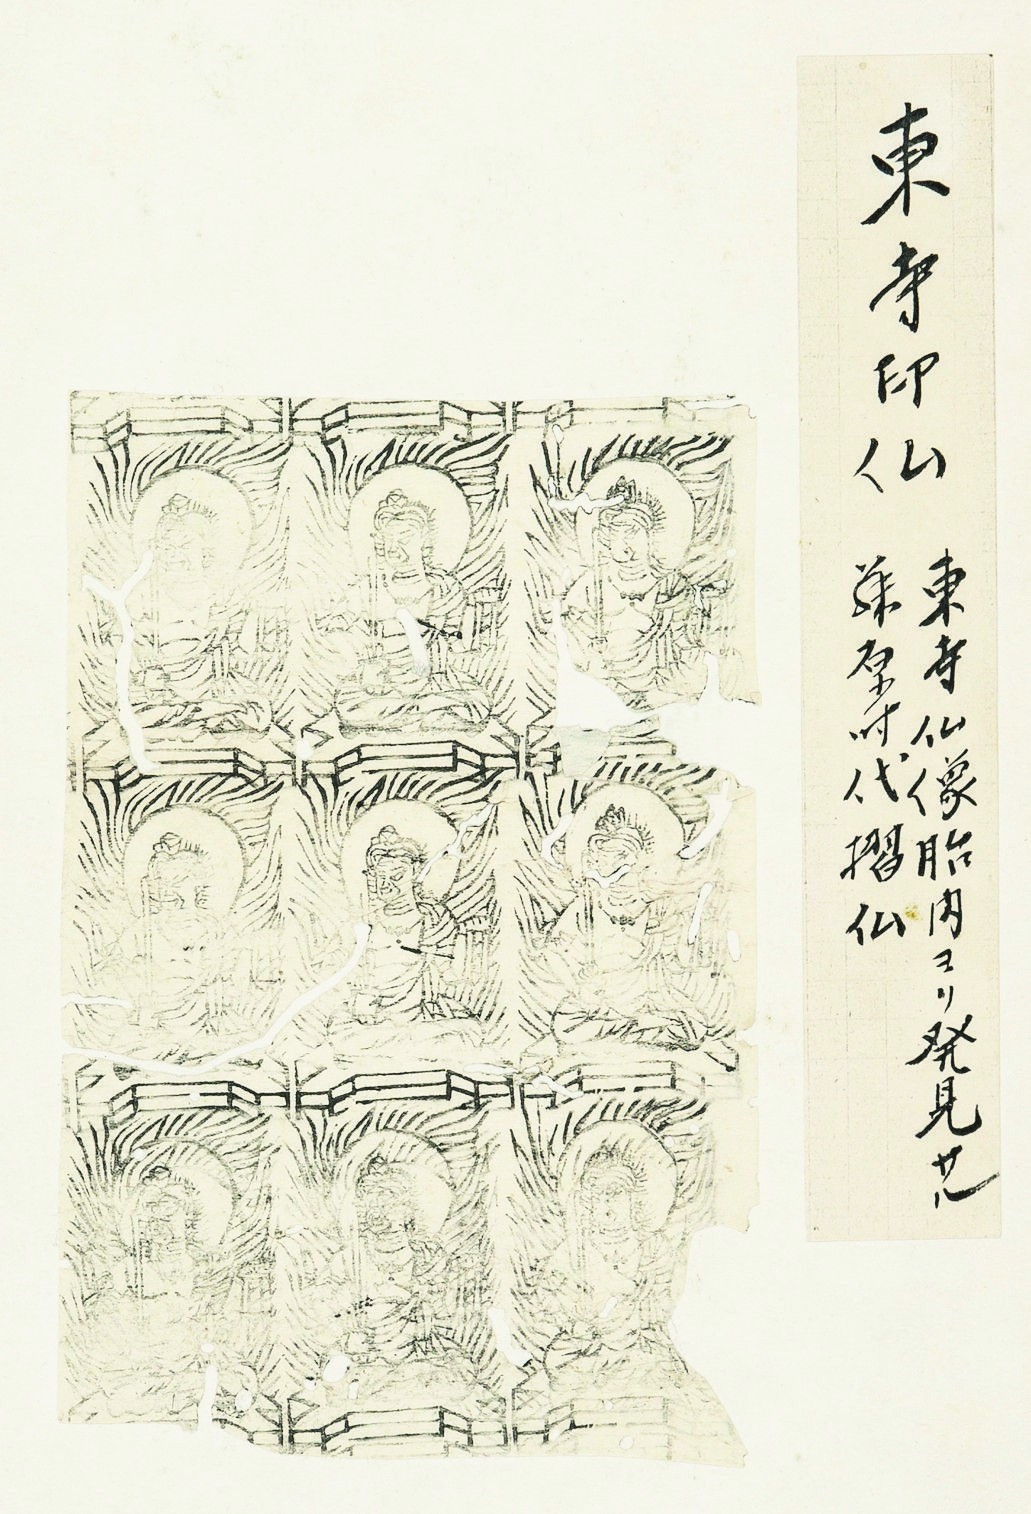 東寺印仏
東寺仏像胎内ヨリ発見サル
藤原時代摺仏